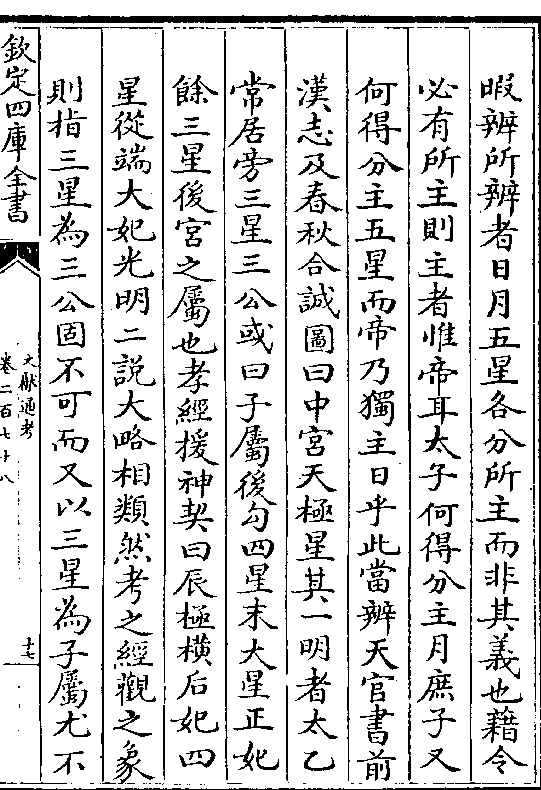 暇辨所辨者日月五星各分所主而非其義也藉令
必有所主則主者惟帝耳太子何得分主月庶子又
何得分主五星而帝乃獨主日乎此當辨天官書前
漢志及春秋合誠圖曰中宮天極星其一明者太乙
常居旁三星三公或曰子屬後勾四星末大星正妃
餘三星後宮之屬也孝經援神契曰辰極橫后妃四
星從端大妃光明二説大略相類然考之經觀之象
則指三星為三公固不可而又以三星為子屬尤不
欽定四庫全書
文獻通考
卷二百七十八
十七